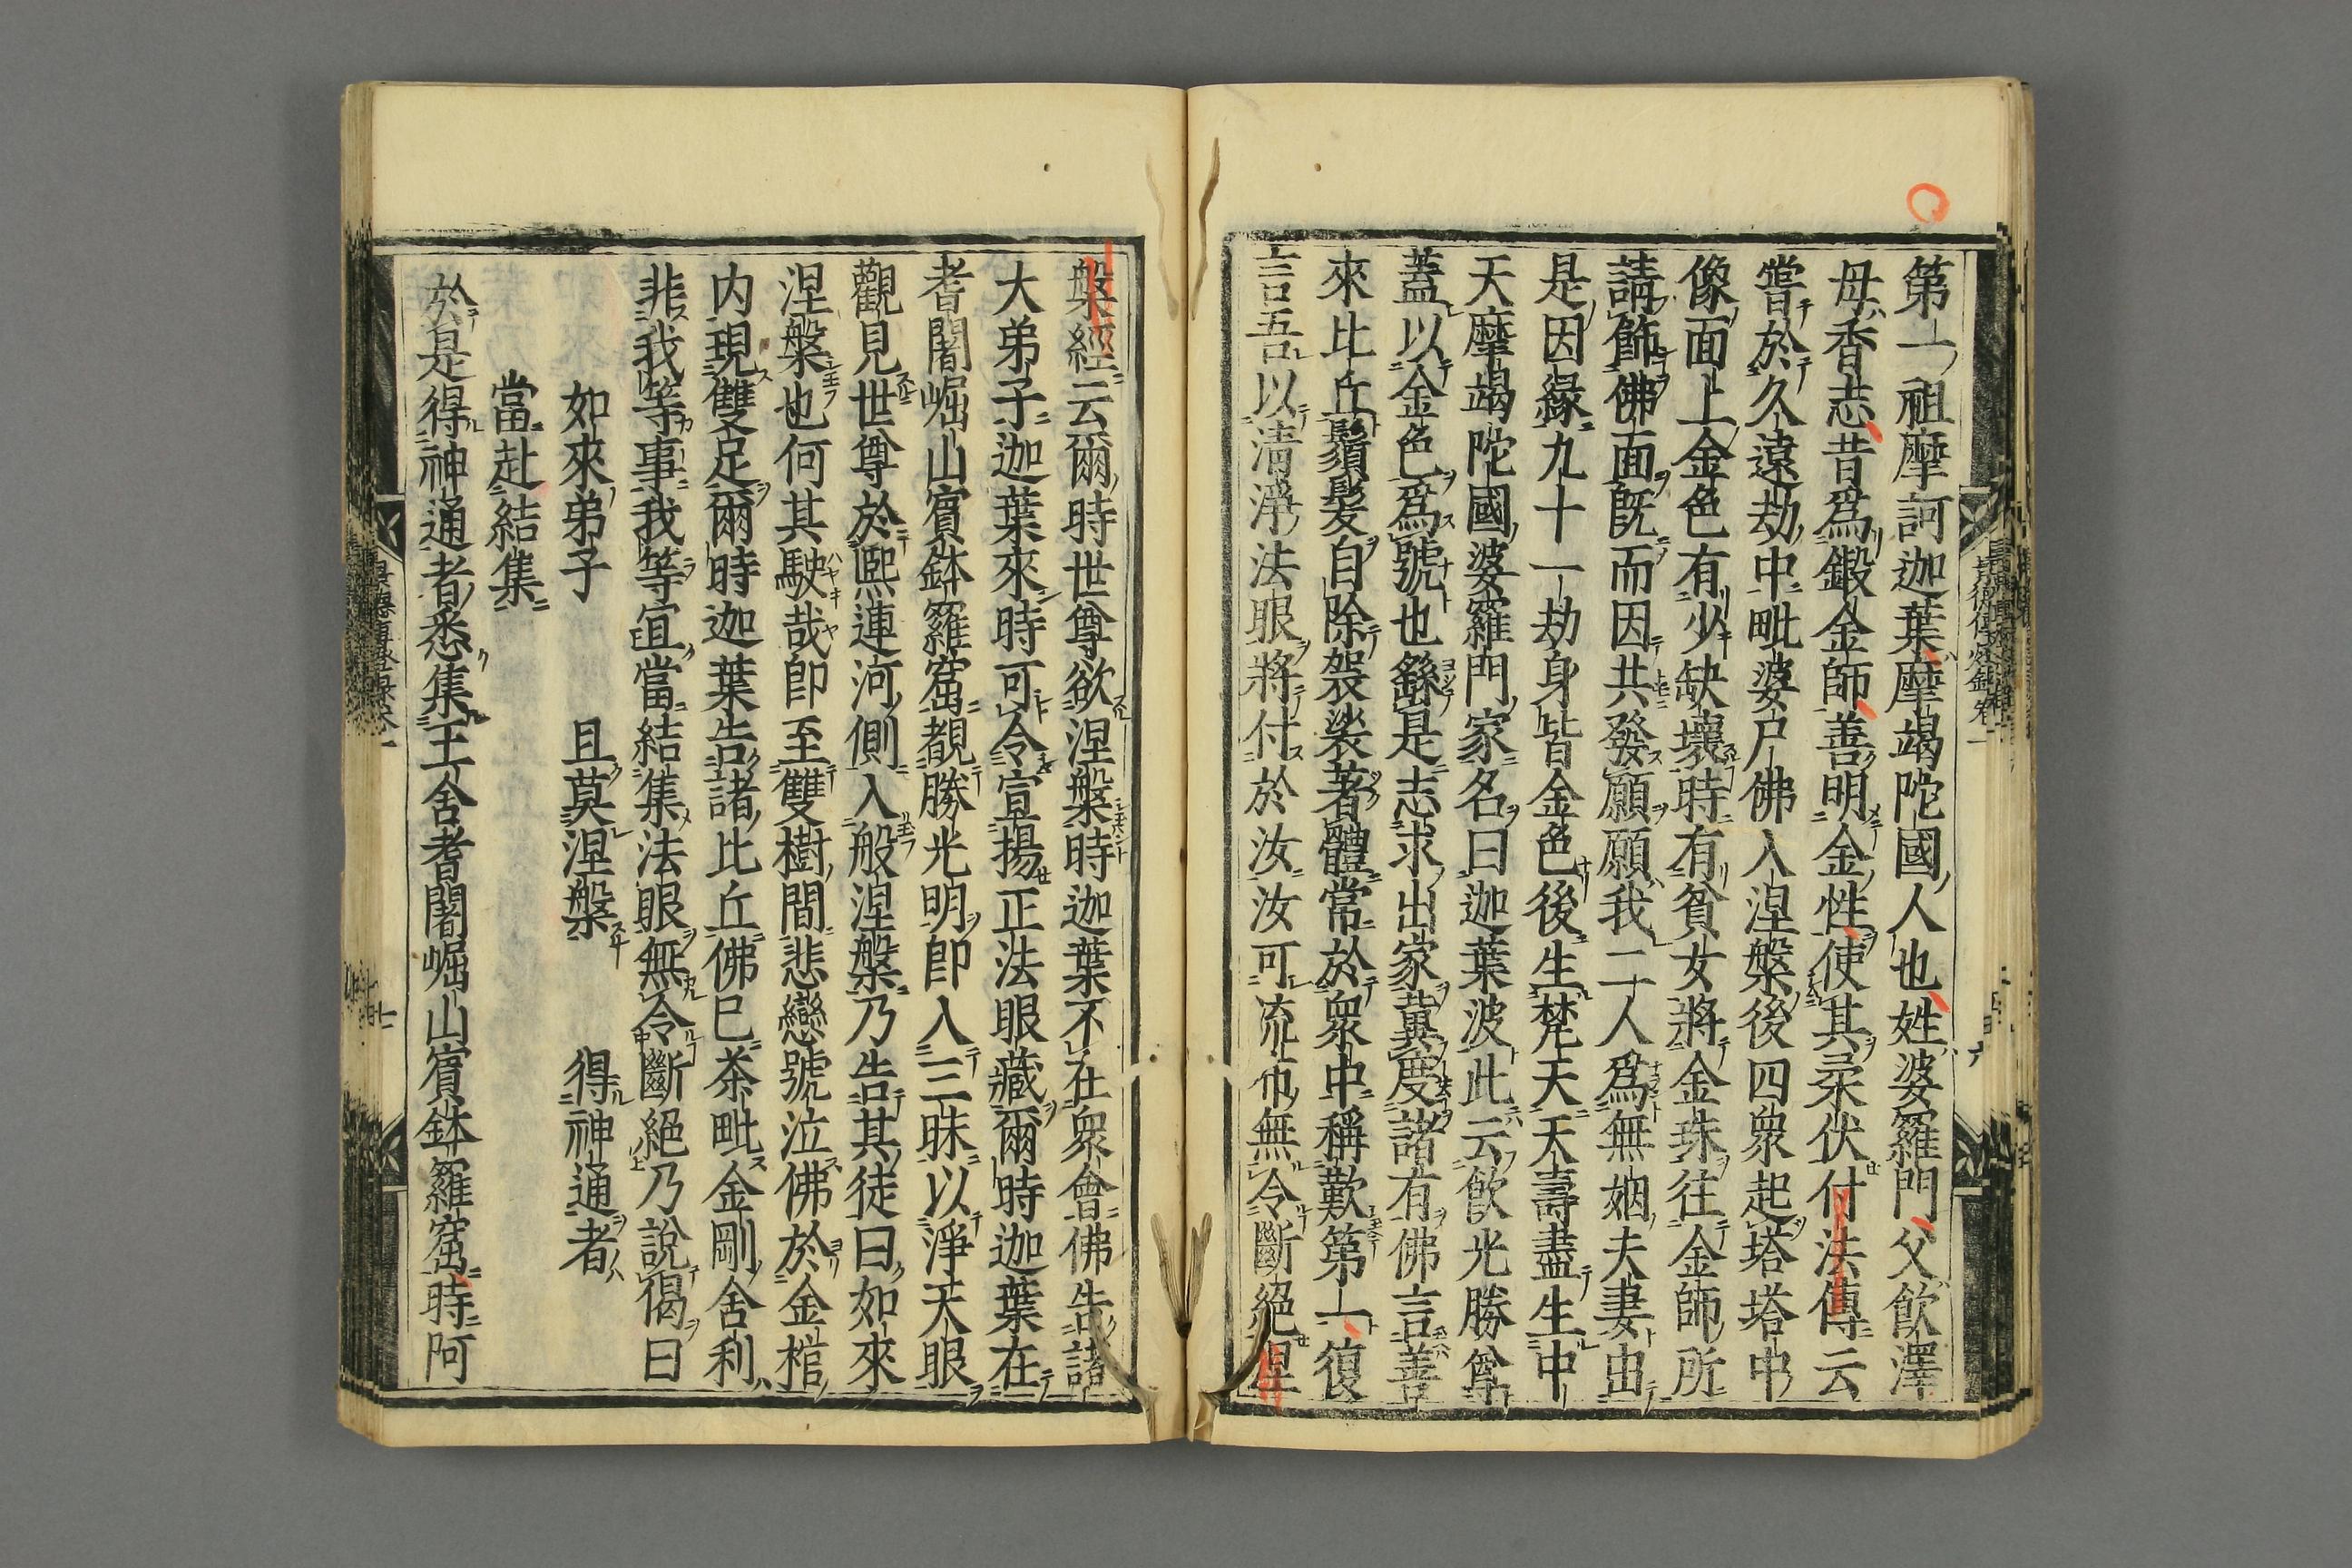 第一祖摩訶迦葉摩竭陀國人也姓婆羅門父飲澤
母香志昔爲鍛金師善明金性使其柔伏付法傳云
嘗於久遠劫中毗婆尸佛入涅槃後四眾起塔塔中
像面上金色有少缺壞時有貧女將金珠往金師所
請飾佛面既而因共發願願我二人爲無姻夫妻由
是因緣九十一劫身皆金色後生梵天天壽盡生中
天摩竭陀國婆羅門家名曰迦葉波此云飲光勝尊
蓋以金色爲號也繇是志求出家冀度諸有佛言善
來比丘鬚髮自除袈裟著體常於眾中稱歎第一復
言吾以清淨法眼將付於汝汝可流布無令斷絕涅
槃經云爾時世尊欲涅槃時迦葉不在眾會佛告諸
大弟子迦葉來時可令宣揚正法眼藏爾時迦葉在
耆闍崛山賓鉢羅窟覩勝光明即入三昧以淨天眼
觀見世尊於熈連河側入般涅槃乃告其徒曰如來
涅槃也何其駛哉即至雙樹間悲戀號泣佛於金棺
内現雙足爾時迦葉告諸比丘佛巳茶毗金剛舍利
非我等事我等宜當結集法眼無令斷絕乃說偈曰
如來弟子　且莫涅槃　得神通者
當赴結集
於是得神通者悉集王舍耆闍崛山賓鉢羅窟時阿